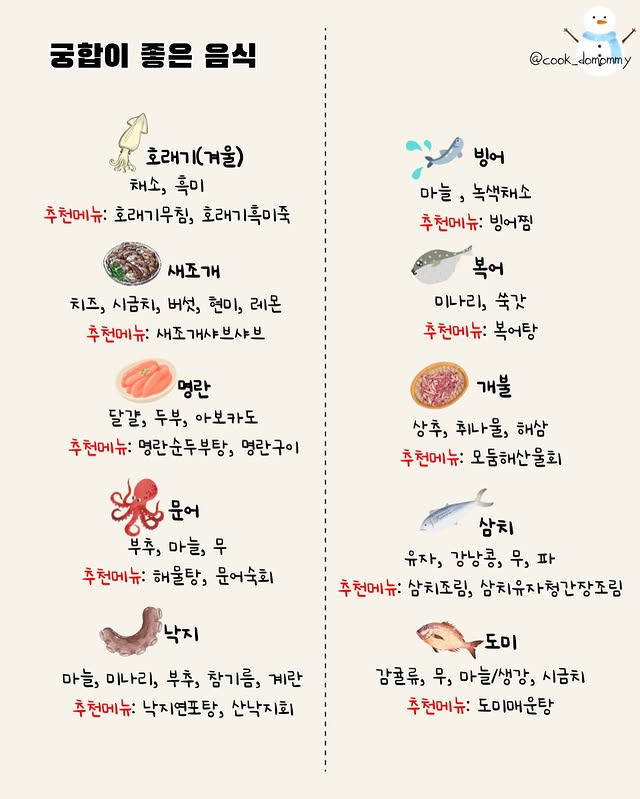 궁합이 좋은 음식
@cook_domommy
호래기(겨울)
채소, 흑미
추천메뉴: 호래기무침, 호래기흑미죽
새조개
치즈, 시금치, 버섯, 현미, 레몬
추천메뉴: 새조개샤브샤브
명란
달걀, 두부, 아보카도
추천메뉴: 명란순두부탕, 명란구이
문어
부추, 마늘, 무
추천메뉴: 해물탕, 문어숙회
낙지
마늘, 미나리, 부추, 참기름, 계란
추천메뉴: 낙지연포탕, 산낙지회
빙어
마늘 , 녹색채소
추천메뉴: 빙어찜
복어
미나리, 쑥갓
추천메뉴: 복어탕
개불
상추, 취나물, 해삼
추천메뉴: 모둠해산물회
삼치
유자, 강낭콩, 무, 파
추천메뉴: 삼치조림, 삼치유자청간장조림
도미
감귤류, 무, 마늘/생강, 시금치
추천메뉴: 도미매운탕